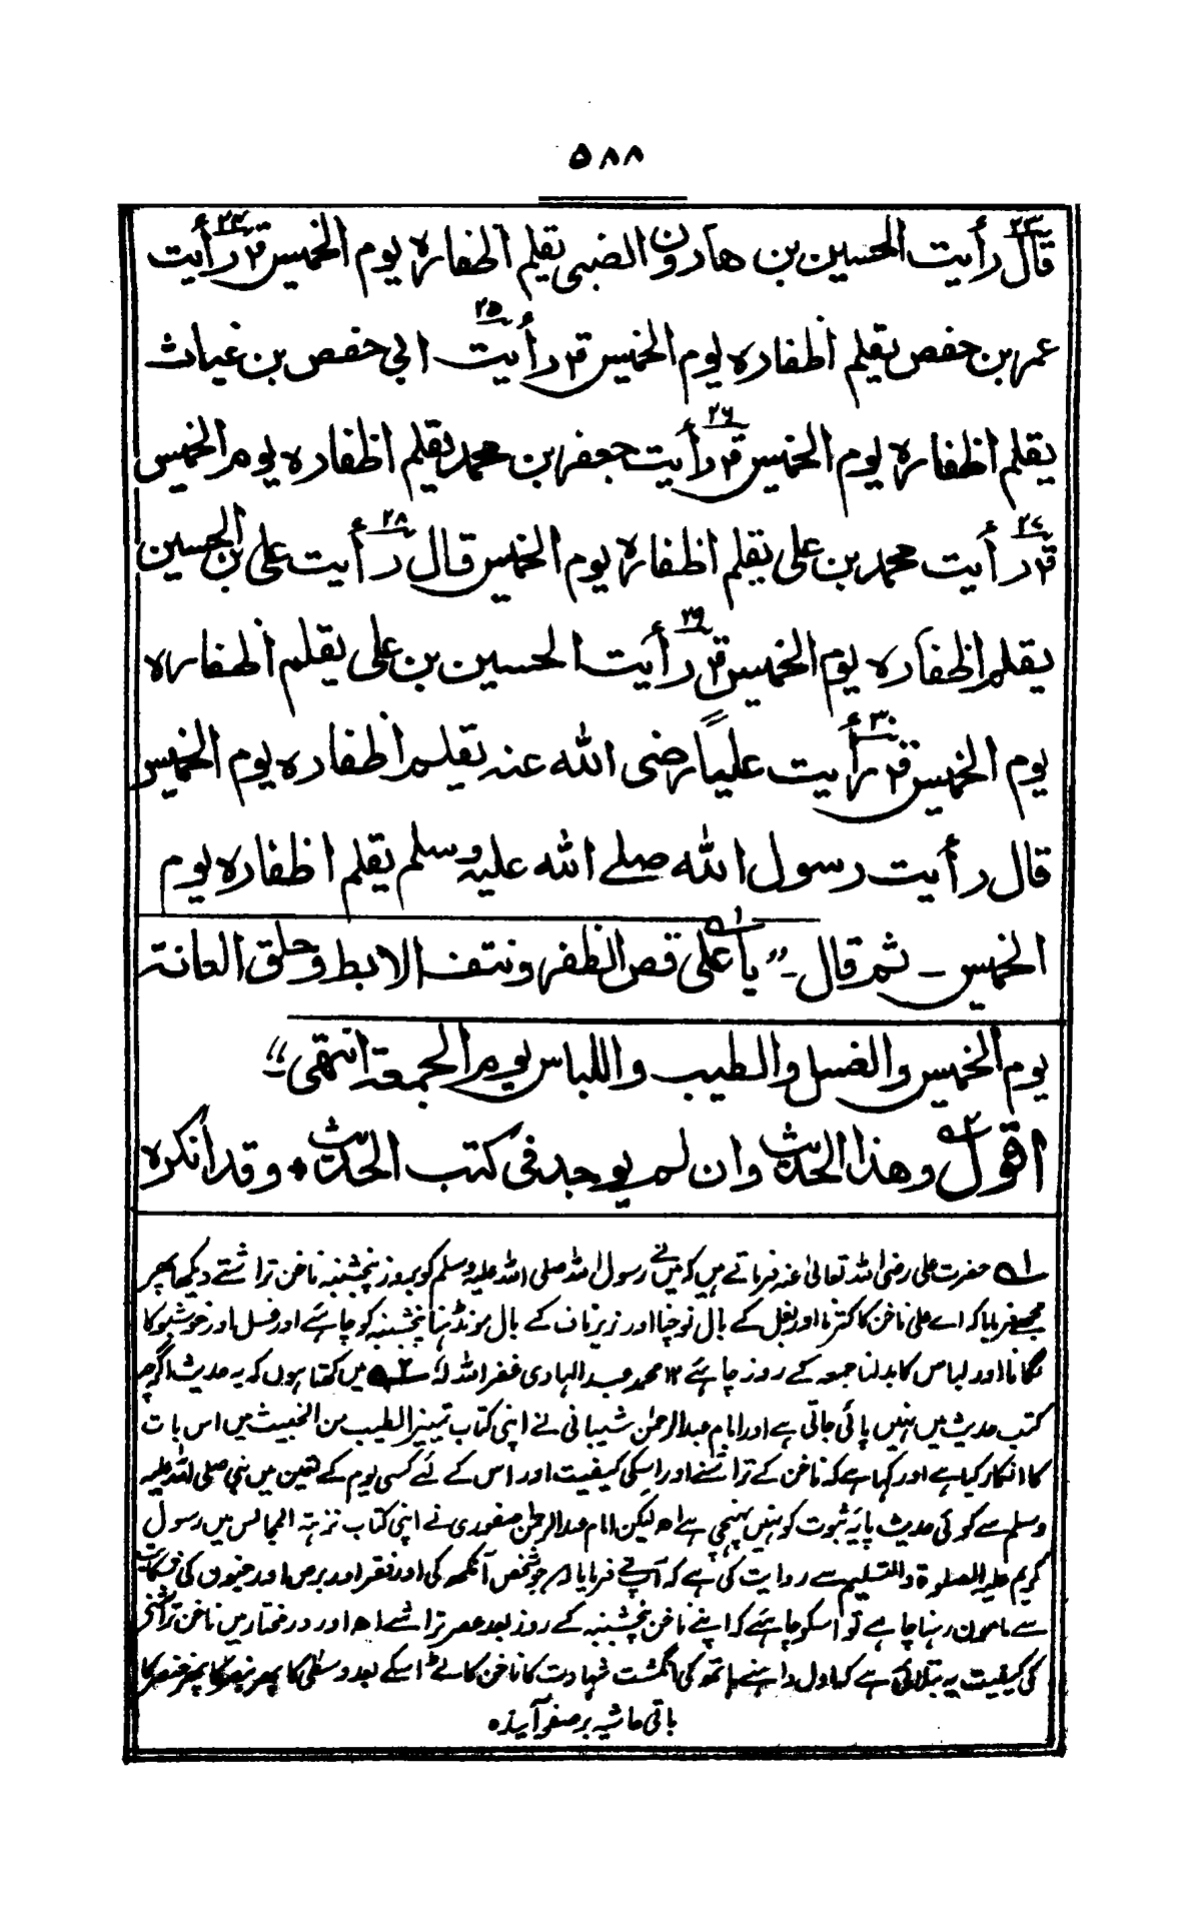 ۵۸۸
قال رأیت الحسین بن هارون الضبی یقلم اظفاره یوم الخمیس قال رأیت
عمر بن حفص یقلم اظفاره یوم الخمیس قال رأیت ابی حفص بن غیاث
یقلم اظفاره یوم الخمیس قال رأیت جعفر بن محمد یقلم اظفاره یوم الخمیس
قال رأیت محمد بن علی یقلم اظفاره یوم الخمیس قال رأیت علی بن الحسین
یقلم اظفاره یوم الخمیس قال رأیت الحسین بن علی یقلم اظفاره
یوم الخمیس قال رأیت علیاً رضی الله عنه یقلم اظفاره یوم الخمیس
قال رأیت رسول الله صلے الله علیه وسلم یقلم اظفاره یوم
الخمیس ـ ثم قال ـ” یا علی قص الظفر ونتف الابط وحلق العانة
یوم الخمیس والغسل والطیب واللباس یوم الجمعة انتهی“
اقول وهذا الحدیث وان لم یوجد فی کتب الحدیث ٠ وقد انکره
۱ حضرت علی رضی اللہ تعالیٰ عنہ فرماتے ہیں کہ میں نے رسول اللہ صلی اللہ علیہ وسلم کو بروز پنجشنبہ ناخن تراشتے دیکھا پھر
مجھسے فرمایا کہ اے علی ناخن کا کترنا اور بغل کے بال نوچنا اور زیر ناف کے بال مونڈھنا پنجشنبہ کو چاہئے اور غسل اور خوشبو کا
لگانا اور لباس کا بدلنا جمعہ کے روز چاہئے ۱۲ محمد عبد الہادی غفر اللہ لہ ۲ میں کہتا ہوں کہ یہ حدیث اگرچہ
کتب حدیث میں نہیں پائی جاتی ہے اور امام عبدالرحمٰن شیبانی نے اپنی کتاب تمییز الطیب من الخبیث میں اس بات
کا انکار کیا ہے اور کہا ہے کہ ناخن کے تراشنے اور اسکی کیفیت اور اس کے لئے کسی یوم کے تعین میں نبی صلی اللہ علیہ
وسلم سے کوئی حدیث پایۂ ثبوت کو نہیں پہنچی ہے اھ لیکن امام عبدالرحمٰن صفوری نے اپنی کتاب نزہۃ المجالس میں رسول
کریم علیہ الصلوۃ والتسلیم سے روایت کی ہے کہ آپ نے فرمایا جو شخص آنکھ کی اور فقر اور برص اور جنون کی شکایت
سے مامون رہنا چاہے تو اسکو چاہئے کہ اپنے ناخن پنجشنبہ کے روز بعد عصر تراشے اھ اور در مختار میں ناخن تراشنے
کی کیفیت یہ بتلائی ہے کہ اول داہنے ہاتھ کی انگشت شہادت کا ناخن کاٹے اسکے بعد وسطٰی کا پھر بنصر کا پھر خنصر کا
باقی حاشیہ بر صفحہ آیندہ